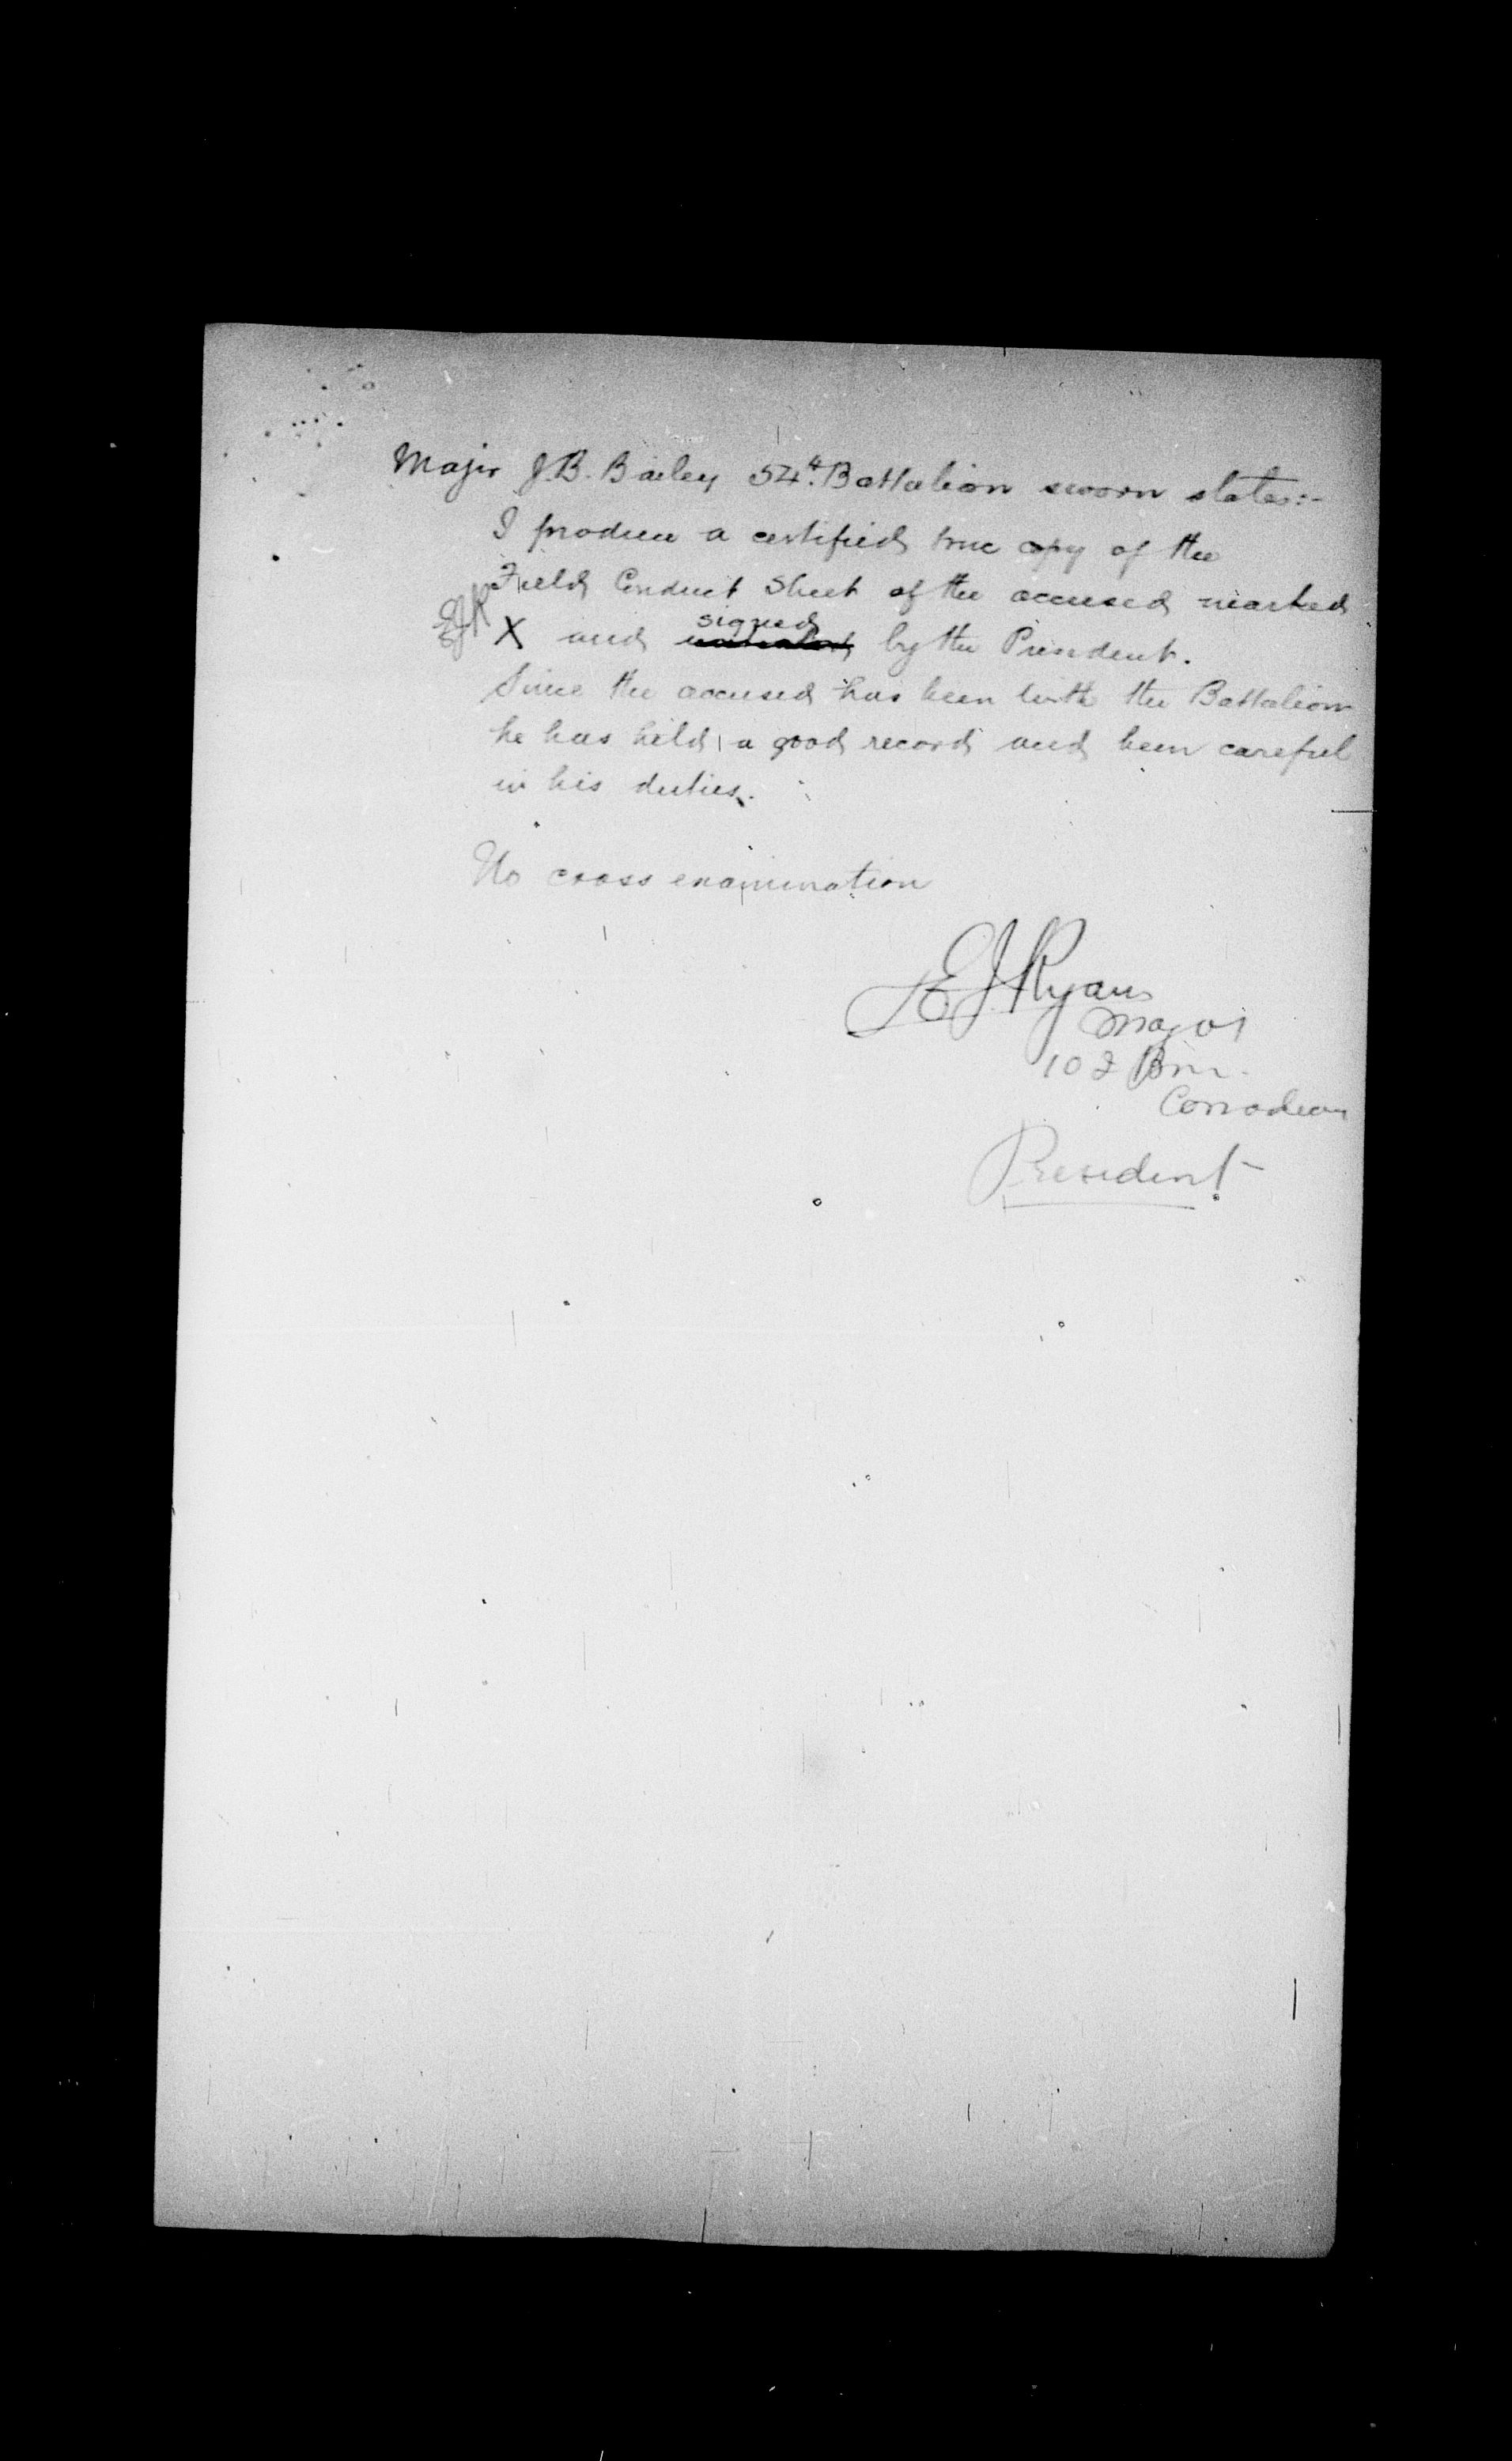 Major J.B. Bailey 54th Battalion sworn states:-
I produce a certified true copy of the
Field Conduct Sheet of the accused marked
EJR X and signed by the President.
Since the accused has been with the Battalion
he has held a good record and been careful
in his duties.
No cross examination
EJ Ryan
Major
102 Bn.
Canadian
President